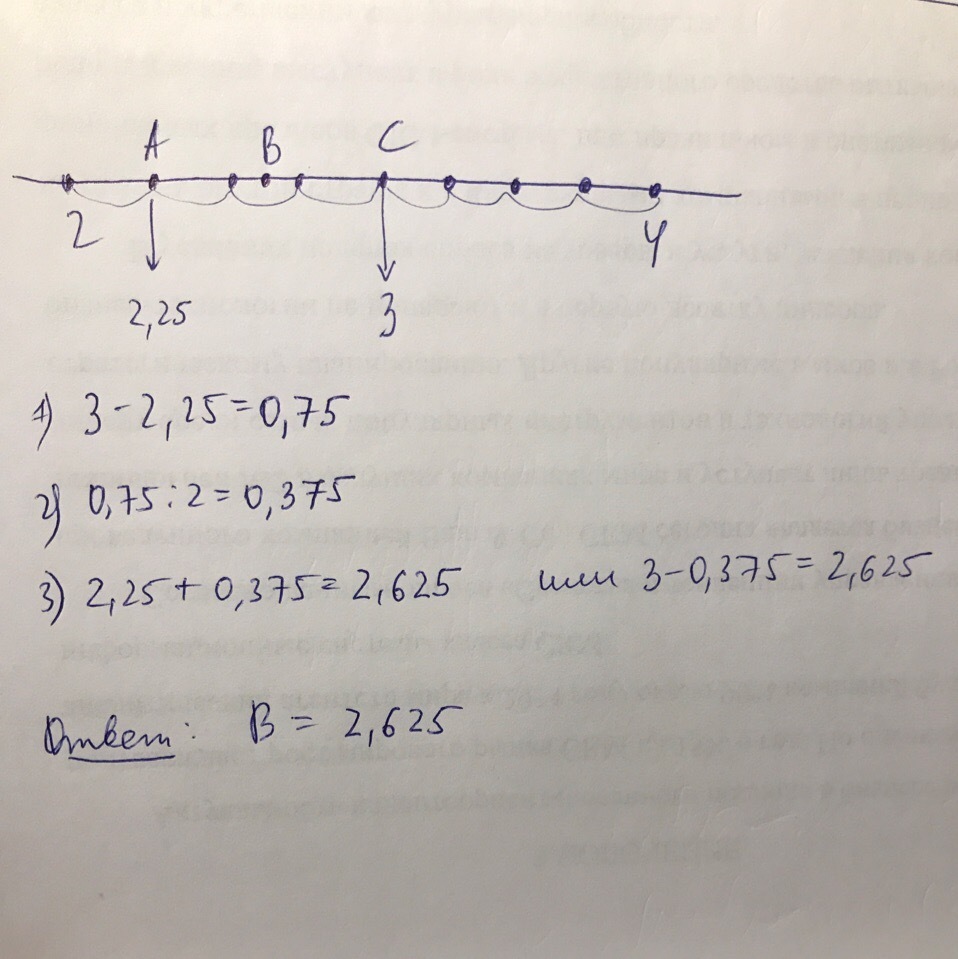 A B C
2 4
2,25 3
1) 3 - 2,25 = 0,75
2) 0,75 : 2 = 0,375
3) 2,25 + 0,375 = 2,625 или 3 - 0,375 = 2,625
Ответ: B = 2,625